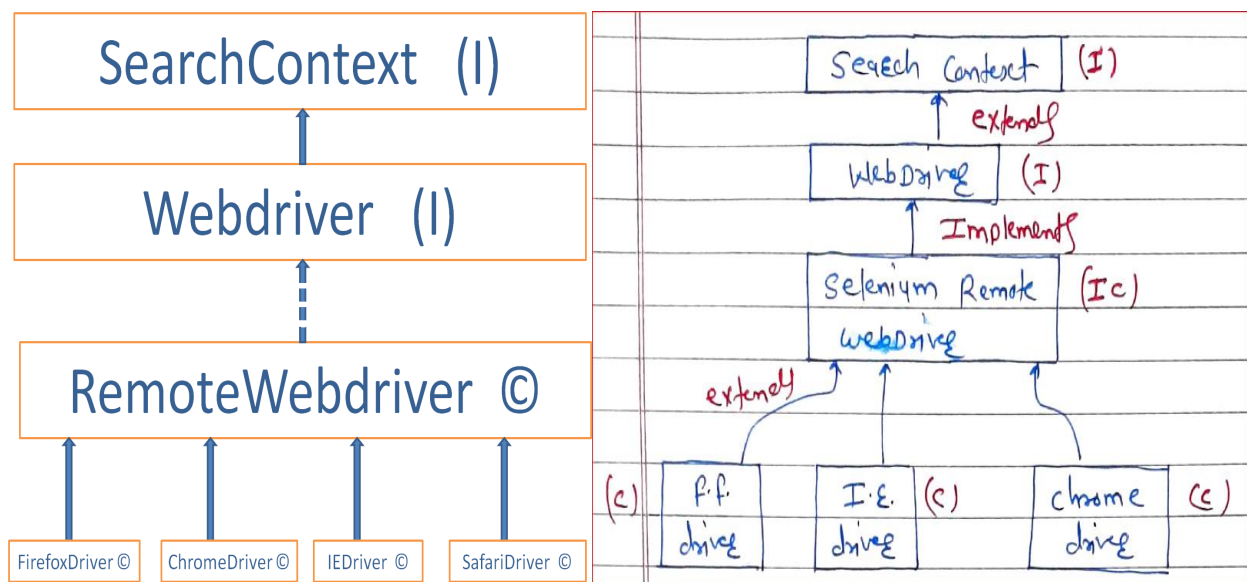 SearchContext (I)
Webdriver (I)
RemoteWebdriver ©
FirefoxDriver ©
ChromeDriver ©
IEDriver ©
SafariDriver ©
Search Context (I)
extends
WebDriver (I)
Implements
Selenium Remote (Ic)
WebDriver
extends
(c) F.F. I.E. (c) chrome (c)
driver driver driver